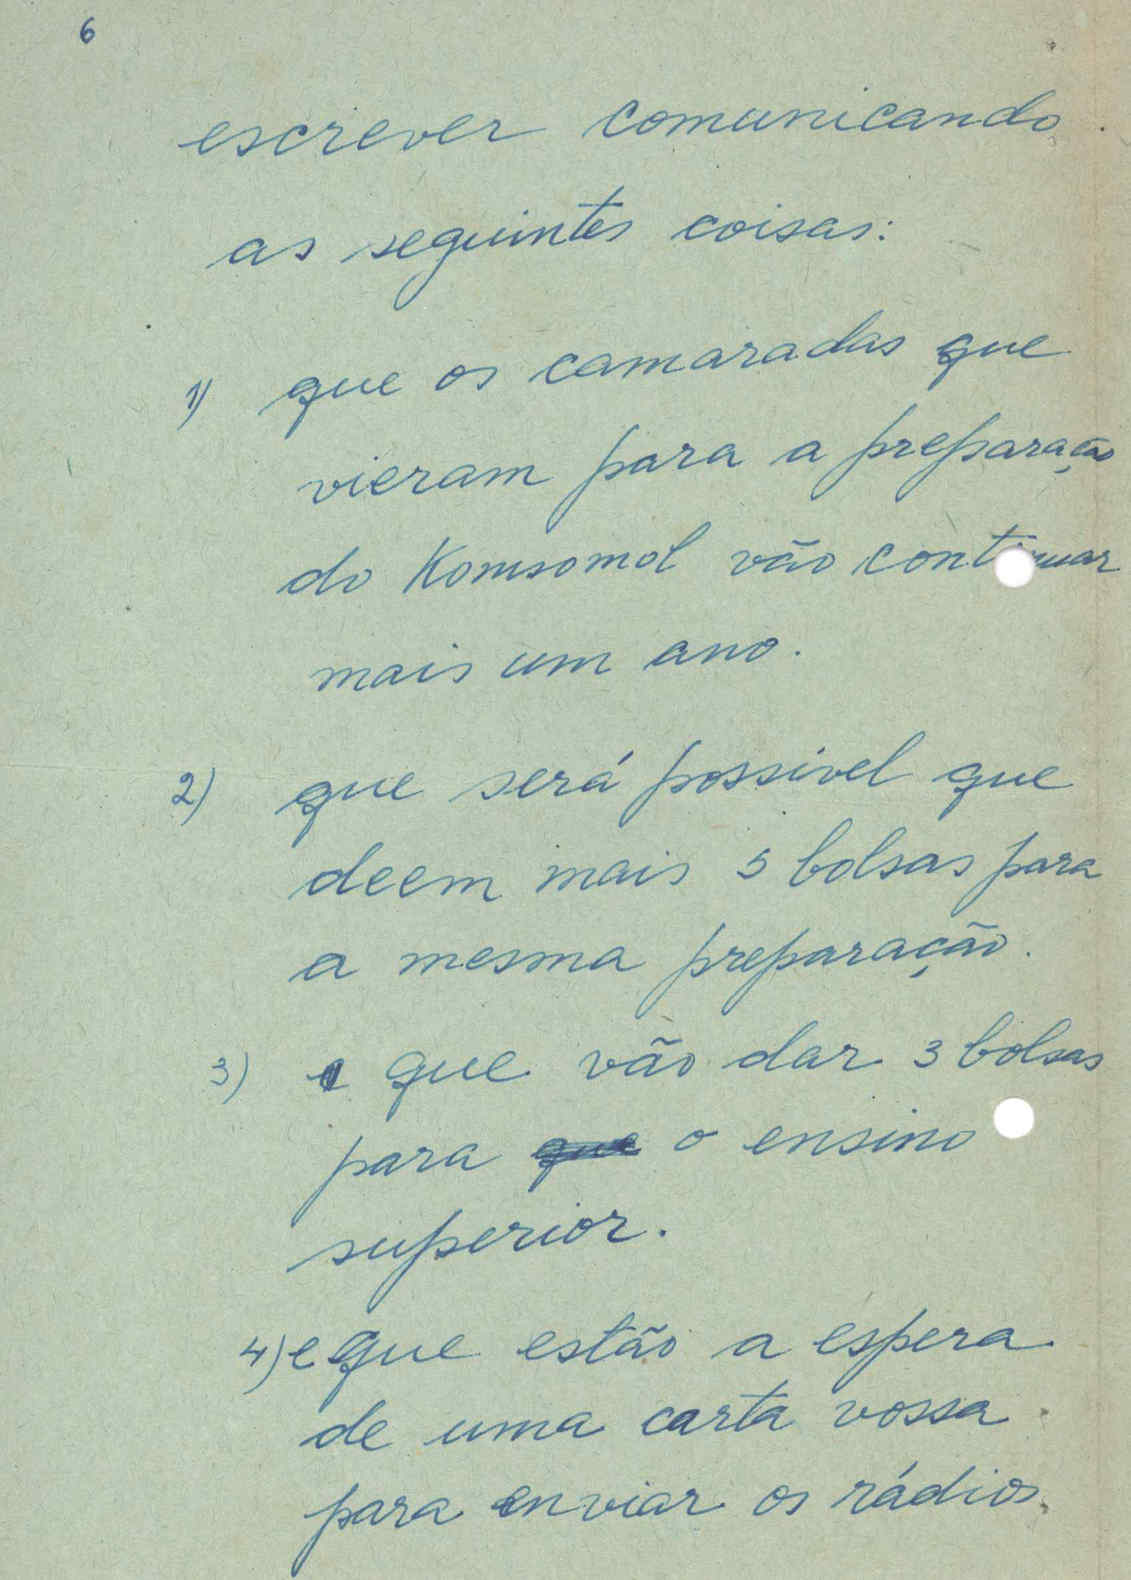 6
escrever comunicando
as seguintes coisas:
1) que os camaradas que
vieram para a preparação
do Komsomol vão continuar
mais um ano.
2) que será possivel que
deem mais 5 bolsas para
a mesma preparação.
3) e que vão dar 3 bolsas
para que o ensino
superior.
4) e que estão a espera
de uma carta vossa
para enviar os rádios.